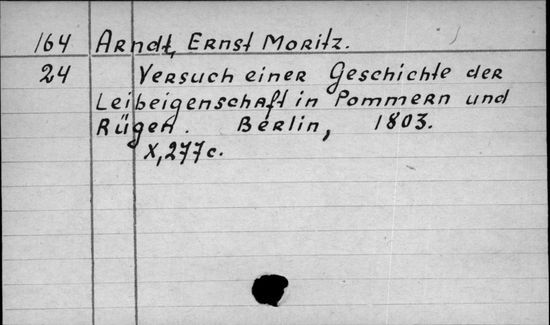 164 Arndt, Ernst Moritz.
24 Versuch einer Geschichte der
Leibeigenschaft in Pommern und
Rügen. Berlin, 1803.
X, 277 c.